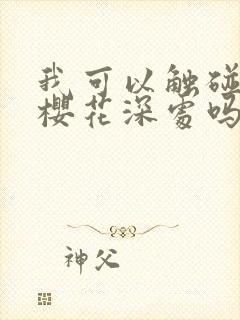 我可以触碰
樱花深处吗
神父